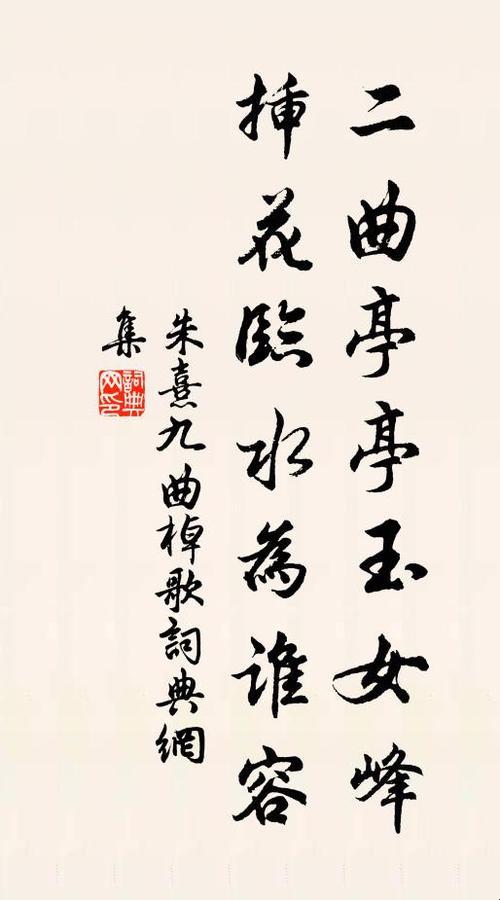 二曲亭亭玉女峰
插花臨水為誰容
朱熹九曲棹歌詞典網
集
詞典网印